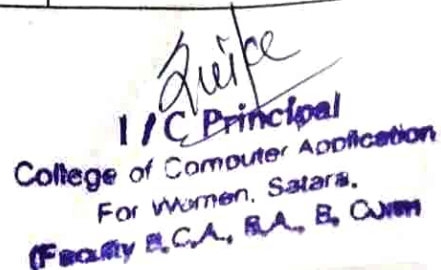 I/C Principal
College of Computer Application
For Women, Satara.
(Faculty B.C.A., B.A., B.